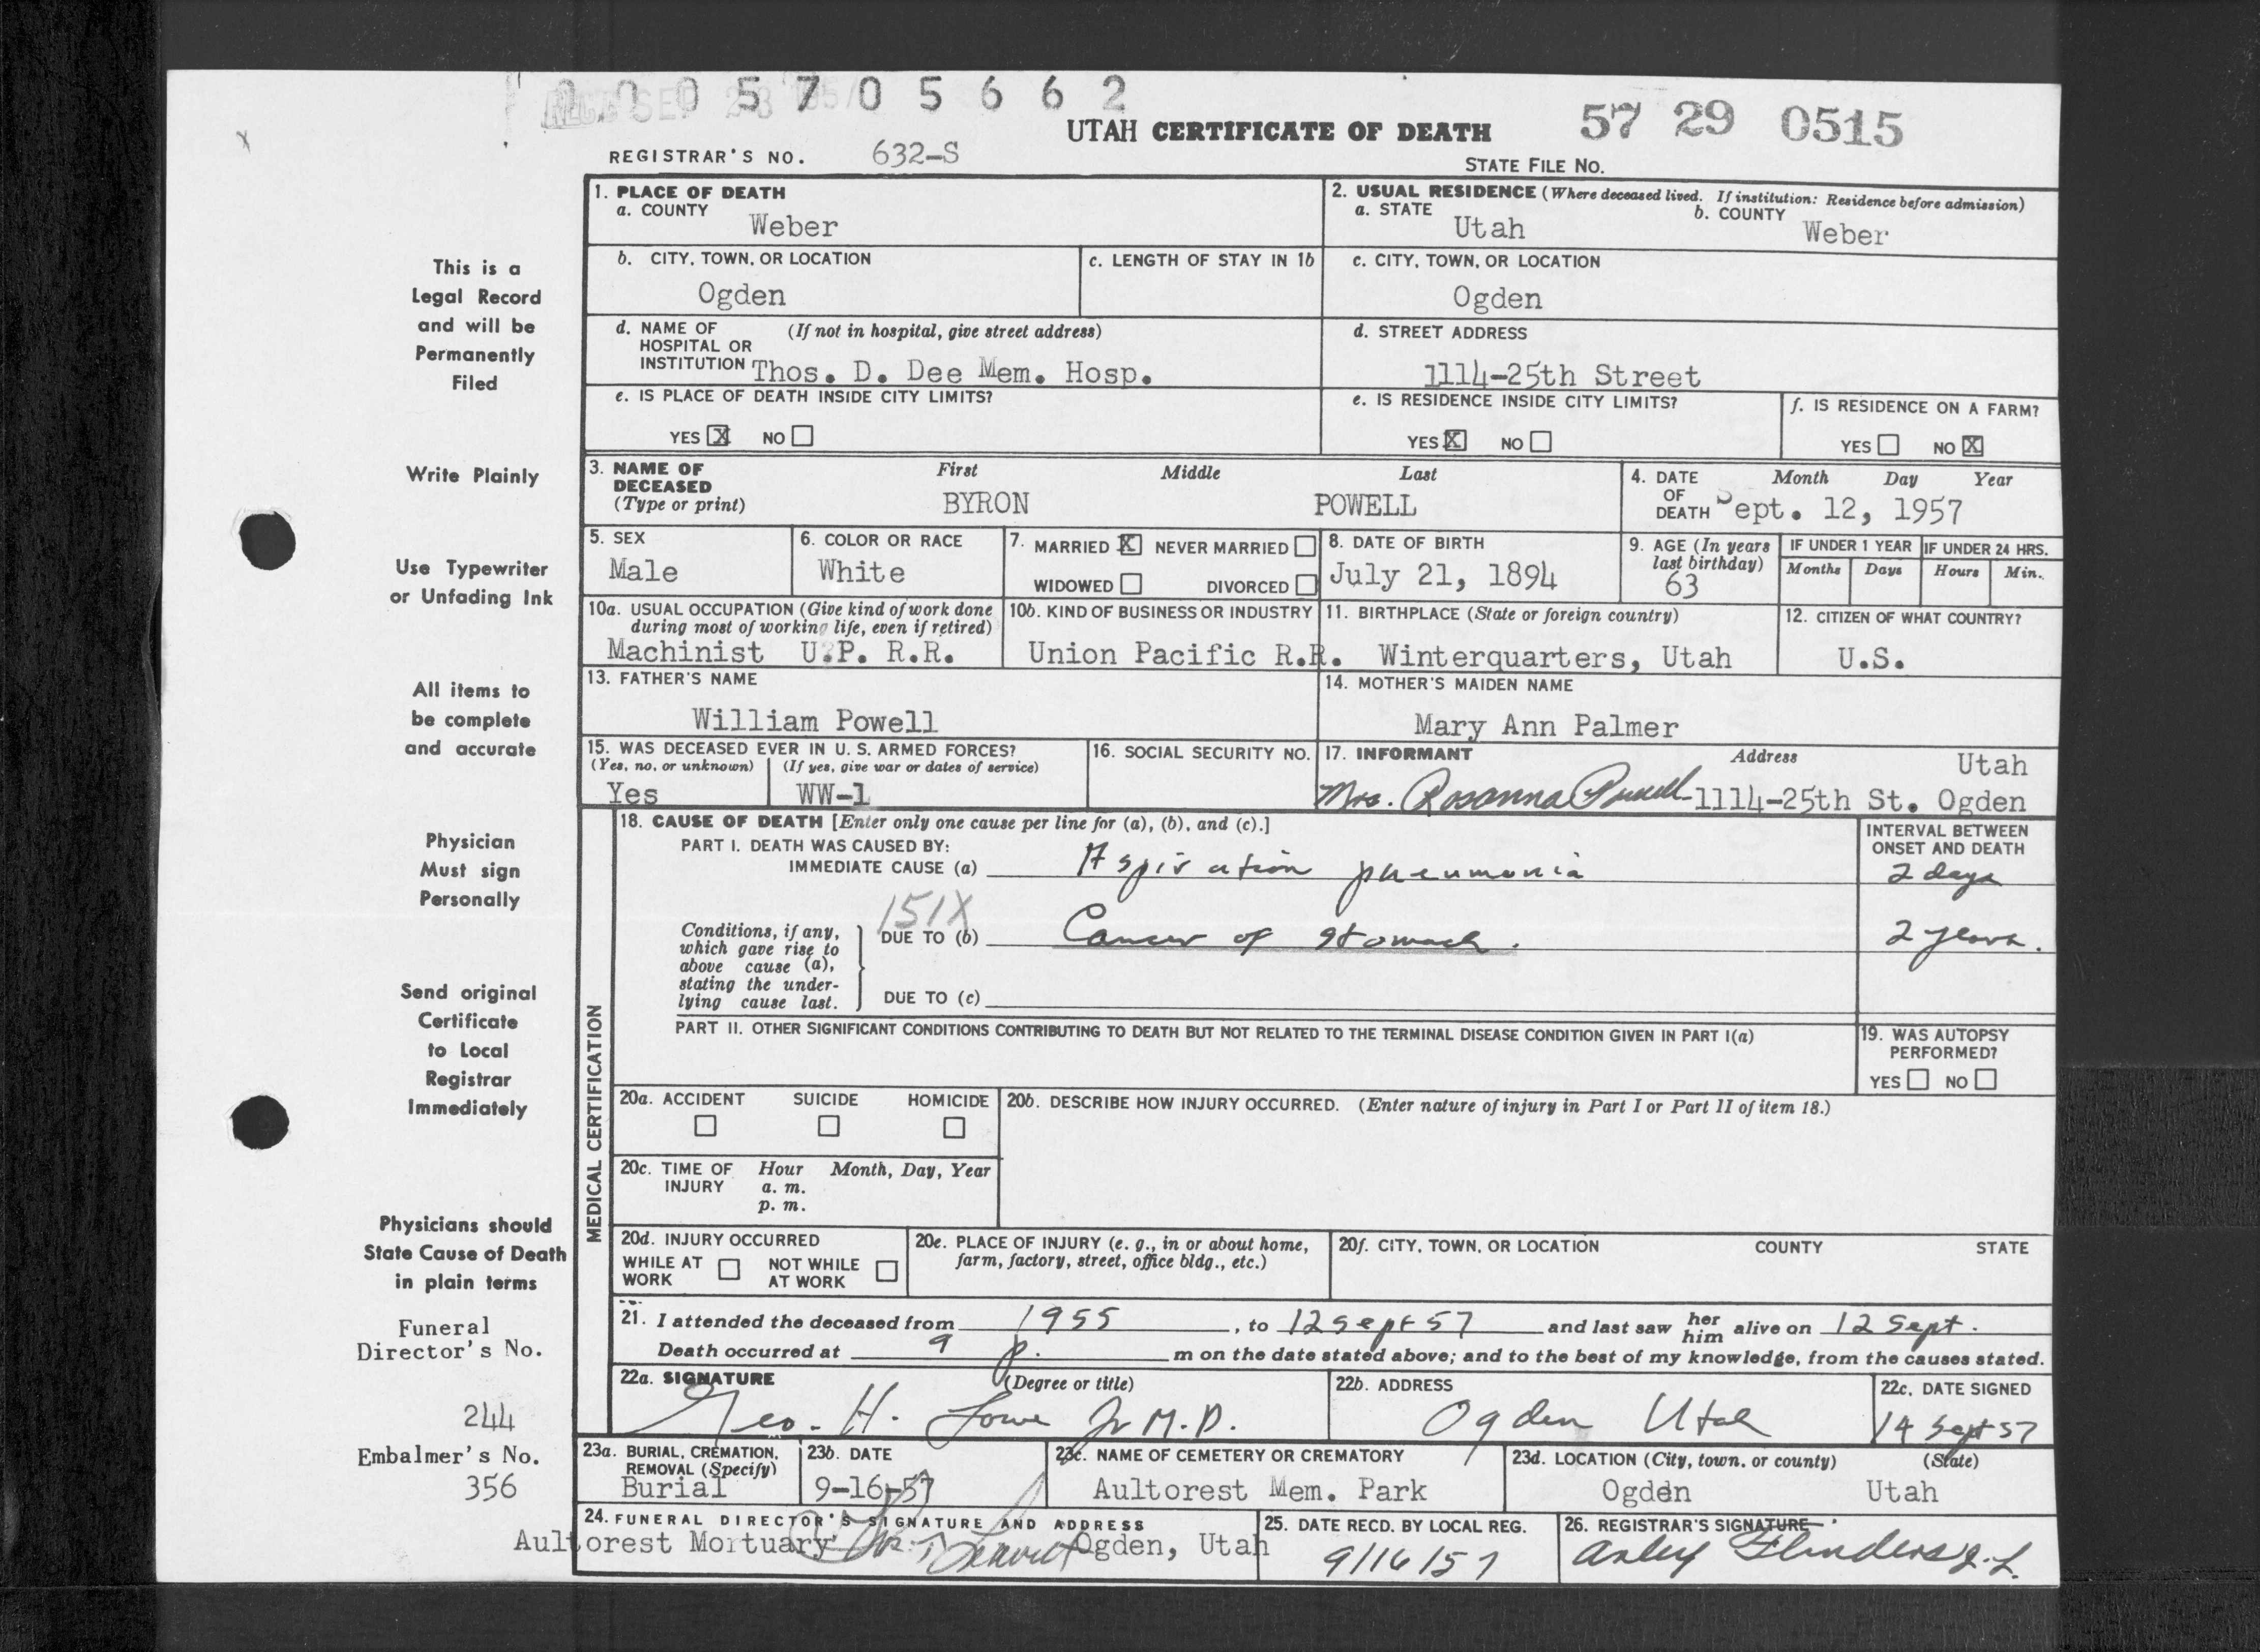 0 0 0 5 7 0 5 6 6 2
REC'D SEP 28 1957
UTAH CERTIFICATE OF DEATH
57 29 0515
REGISTRAR'S NO. 632-S
STATE FILE NO.
1. PLACE OF DEATH
a. COUNTY
Weber
2. USUAL RESIDENCE (Where deceased lived. If institution: Residence before admission)
a. STATE
Utah
b. COUNTY
Weber
b. CITY, TOWN, OR LOCATION
Ogden
c. LENGTH OF STAY IN 1b
c. CITY, TOWN, OR LOCATION
Ogden
d. NAME OF HOSPITAL OR INSTITUTION
(If not in hospital, give street address)
Thos. D. Dee Mem. Hosp.
d. STREET ADDRESS
1114-25th Street
e. IS PLACE OF DEATH INSIDE CITY LIMITS?
YES X NO
e. IS RESIDENCE INSIDE CITY LIMITS?
YES X NO
f. IS RESIDENCE ON A FARM?
YES NO X
3. NAME OF DECEASED
(Type or print)
First Middle Last
BYRON POWELL
4. DATE OF DEATH
Month Day Year
Sept. 12, 1957
5. SEX
Male
6. COLOR OR RACE
White
7. MARRIED X NEVER MARRIED
WIDOWED DIVORCED
8. DATE OF BIRTH
July 21, 1894
9. AGE (In years last birthday)
63
IF UNDER 1 YEAR
Months Days
IF UNDER 24 HRS.
Hours Min.
10a. USUAL OCCUPATION (Give kind of work done
during most of working life, even if retired)
Machinist U.P. R.R.
10b. KIND OF BUSINESS OR INDUSTRY
Union Pacific R.R.
11. BIRTHPLACE (State or foreign country)
Winterquarters, Utah
12. CITIZEN OF WHAT COUNTRY?
U.S.
13. FATHER'S NAME
William Powell
14. MOTHER'S MAIDEN NAME
Mary Ann Palmer
15. WAS DECEASED EVER IN U. S. ARMED FORCES?
(Yes, no, or unknown) (If yes, give war or dates of service)
Yes WW-1
16. SOCIAL SECURITY NO.
17. INFORMANT Address
Utah
Mrs. Rosanna Powell 1114-25th St. Ogden
MEDICAL CERTIFICATION
18. CAUSE OF DEATH [Enter only one cause per line for (a), (b), and (c).]
INTERVAL BETWEEN
ONSET AND DEATH
PART I. DEATH WAS CAUSED BY:
IMMEDIATE CAUSE (a) Aspiration pneumonia 2 days
151X
Conditions, if any,
which gave rise to
above cause (a),
stating the under-
lying cause last.
DUE TO (b) Cancer of stomach. 2 years.
DUE TO (c)
PART II. OTHER SIGNIFICANT CONDITIONS CONTRIBUTING TO DEATH BUT NOT RELATED TO THE TERMINAL DISEASE CONDITION GIVEN IN PART I(a)
19. WAS AUTOPSY
PERFORMED?
YES NO
20a. ACCIDENT SUICIDE HOMICIDE
20b. DESCRIBE HOW INJURY OCCURRED. (Enter nature of injury in Part I or Part II of item 18.)
20c. TIME OF INJURY
Hour Month, Day, Year
a. m.
p. m.
20d. INJURY OCCURRED
WHILE AT WORK
NOT WHILE AT WORK
20e. PLACE OF INJURY (e. g., in or about home,
farm, factory, street, office bldg., etc.)
20f. CITY, TOWN, OR LOCATION COUNTY STATE
21. I attended the deceased from 1955, to 12 Sept 57 and last saw her him alive on 12 Sept.
Death occurred at 9 p. m on the date stated above; and to the best of my knowledge, from the causes stated.
22a. SIGNATURE (Degree or title)
Geo. H. Lowe Jr M.D.
22b. ADDRESS
Ogden Utah
22c. DATE SIGNED
14 Sept 57
23a. BURIAL, CREMATION,
REMOVAL (Specify)
Burial
23b. DATE
9-16-57
23c. NAME OF CEMETERY OR CREMATORY
Aultorest Mem. Park
23d. LOCATION (City, town, or county) (State)
Ogden Utah
24. FUNERAL DIRECTOR'S SIGNATURE AND ADDRESS
Aultorest Mortuary Ogden, Utah
25. DATE RECD. BY LOCAL REG.
9/16/57
26. REGISTRAR'S SIGNATURE
Flinders
This is a
Legal Record
and will be
Permanently
Filed
Write Plainly
Use Typewriter
or Unfading Ink
All items to
be complete
and accurate
Physician
Must sign
Personally
Send original
Certificate
to Local
Registrar
Immediately
Physicians should
State Cause of Death
in plain terms
Funeral
Director's No.
244
Embalmer's No.
356